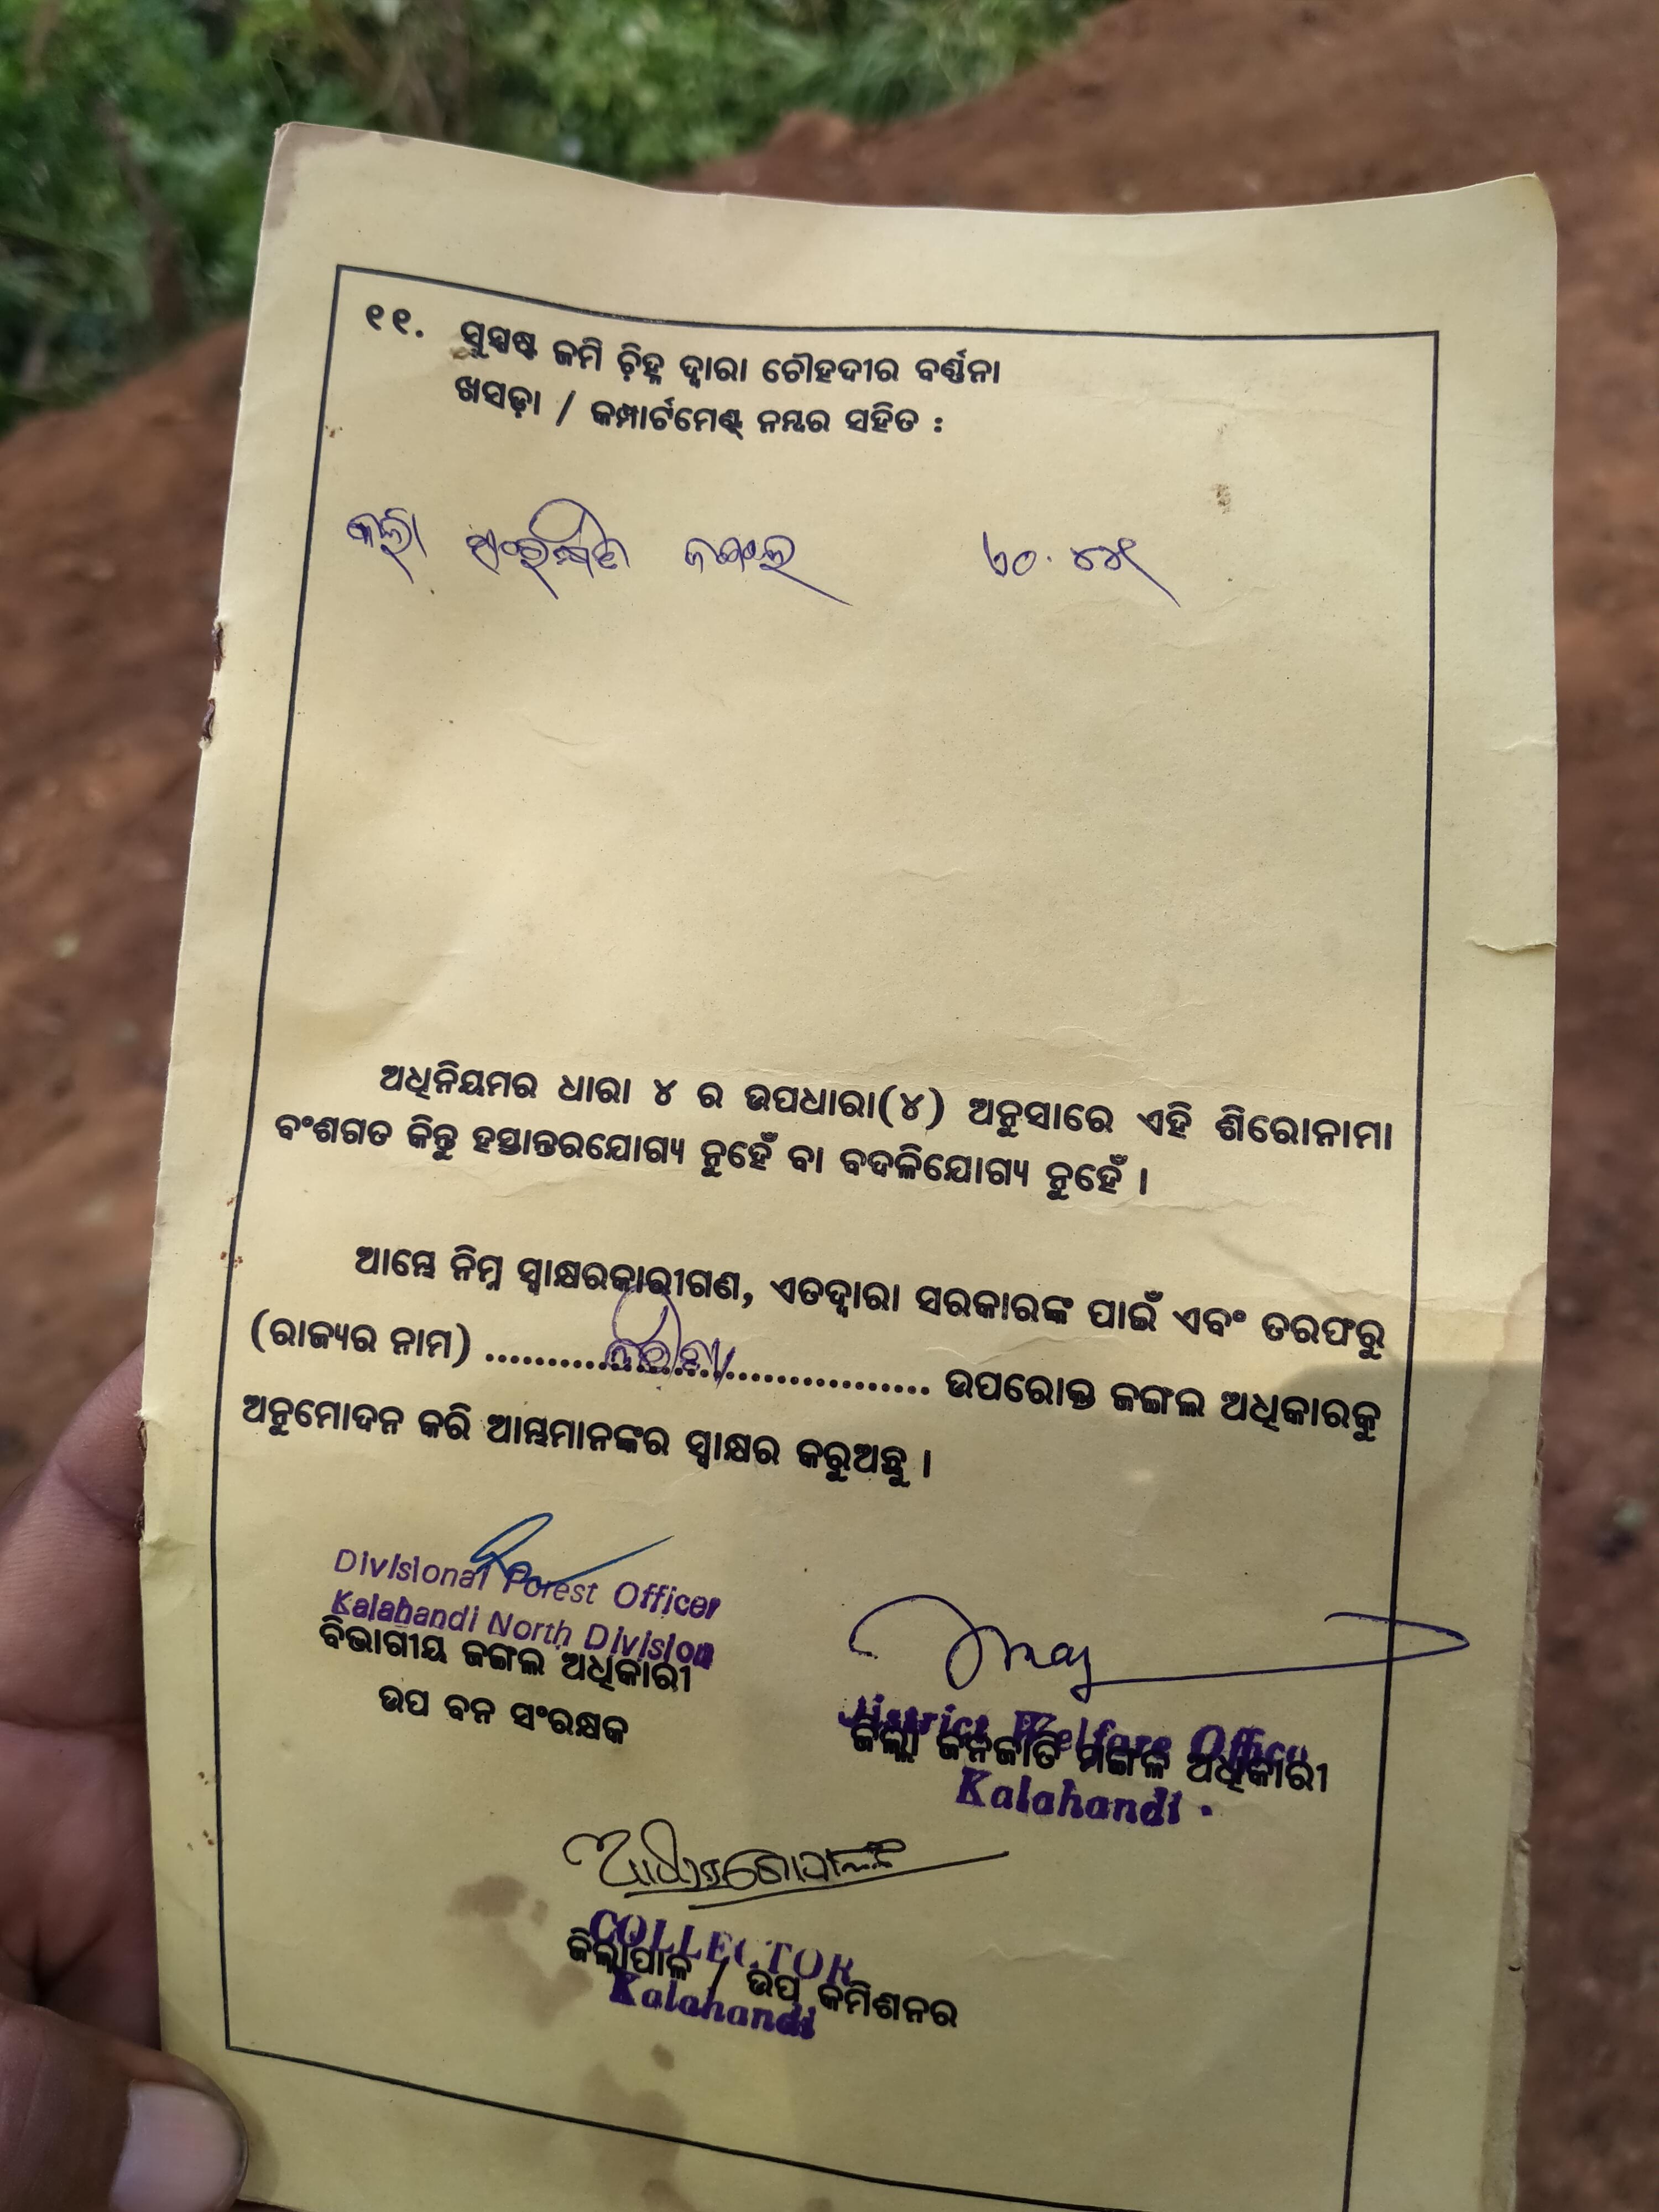 ୧୧. ସୁସ୍ପଷ୍ଟ ଜମି ଚ଼ିହ୍ନ ଦ୍ୱାରା ଚୌହଦୀର ବର୍ଣ୍ଣନା
ଖସଡ଼ା / କମ୍ପାର୍ଟମେଣ୍ଟ୍ ନମ୍ବର ସହିତ :
ସଂରକ୍ଷିତ ଜଙ୍ଗଲ
ଅଧିନିୟମର ଧାରା ୪ ର ଉପଧାରା(୪) ଅନୁସାରେ ଏହି ଶିରୋନାମା
ବଂଶଗତ କିନ୍ତୁ ହସ୍ତାନ୍ତରଯୋଗ୍ୟ ନୁହେଁ ବା ବଦଳିଯୋଗ୍ୟ ନୁହେଁ ।
ଆମ୍ଭେ ନିମ୍ନ ସ୍ୱାକ୍ଷରକାରୀଗଣ, ଏତଦ୍ୱାରା ସରକାରଙ୍କ ପାଇଁ ଏବଂ ତରଫରୁ
(ରାଜ୍ୟର ନାମ) .................................... ଉପରୋକ୍ତ ଜଙ୍ଗଲ ଅଧିକାରକୁ
ଅନୁମୋଦନ କରି ଆମ୍ଭମାନଙ୍କର ସ୍ୱାକ୍ଷର କରୁଅଛୁ ।
Divisional Forest Officer
Kalahandi North Division
ବିଭାଗୀୟ ଜଙ୍ଗଲ ଅଧିକାରୀ
ଉପ ବନ ସଂରକ୍ଷକ
District Welfare Office
ଜିଲ୍ଲା ଜନଜାତି ମଙ୍ଗଳ ଅଧିକାରୀ
Kalahandi.
COLLECTOR
ଜିଲ୍ଲାପାଳ / ଉପ କମିଶନର
Kalahandi